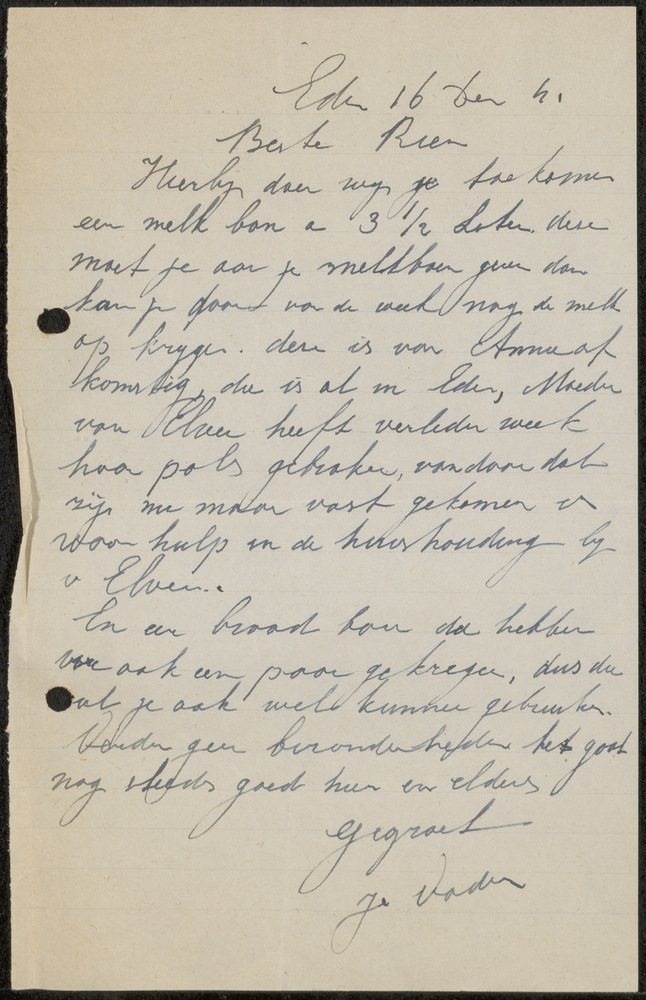 Eden 16 Dec 4.
Beste Rien
Hierbij doen wij je toekomen
een melk bon a 3 1/2 Liter. deze
moet je aan je melkboer geven dan
kan je door van de week nog de melk
op krijgen. deze is van Annie af
komstig, die is al in Eden, Moeder
van Elven heeft verleden week
haar pols gebroken, vandaar dat
zij nu maar vast gekomen is
voor hulp in de huishouding by
v Elven..
En een brood bon da hebben
we ook een paar gekregen, dus die
zal je ook wel kunnen gebruiken.
Verder geen bezonderheden het gaat
nog steeds goed hier en elders
Gegroet
Je Vader